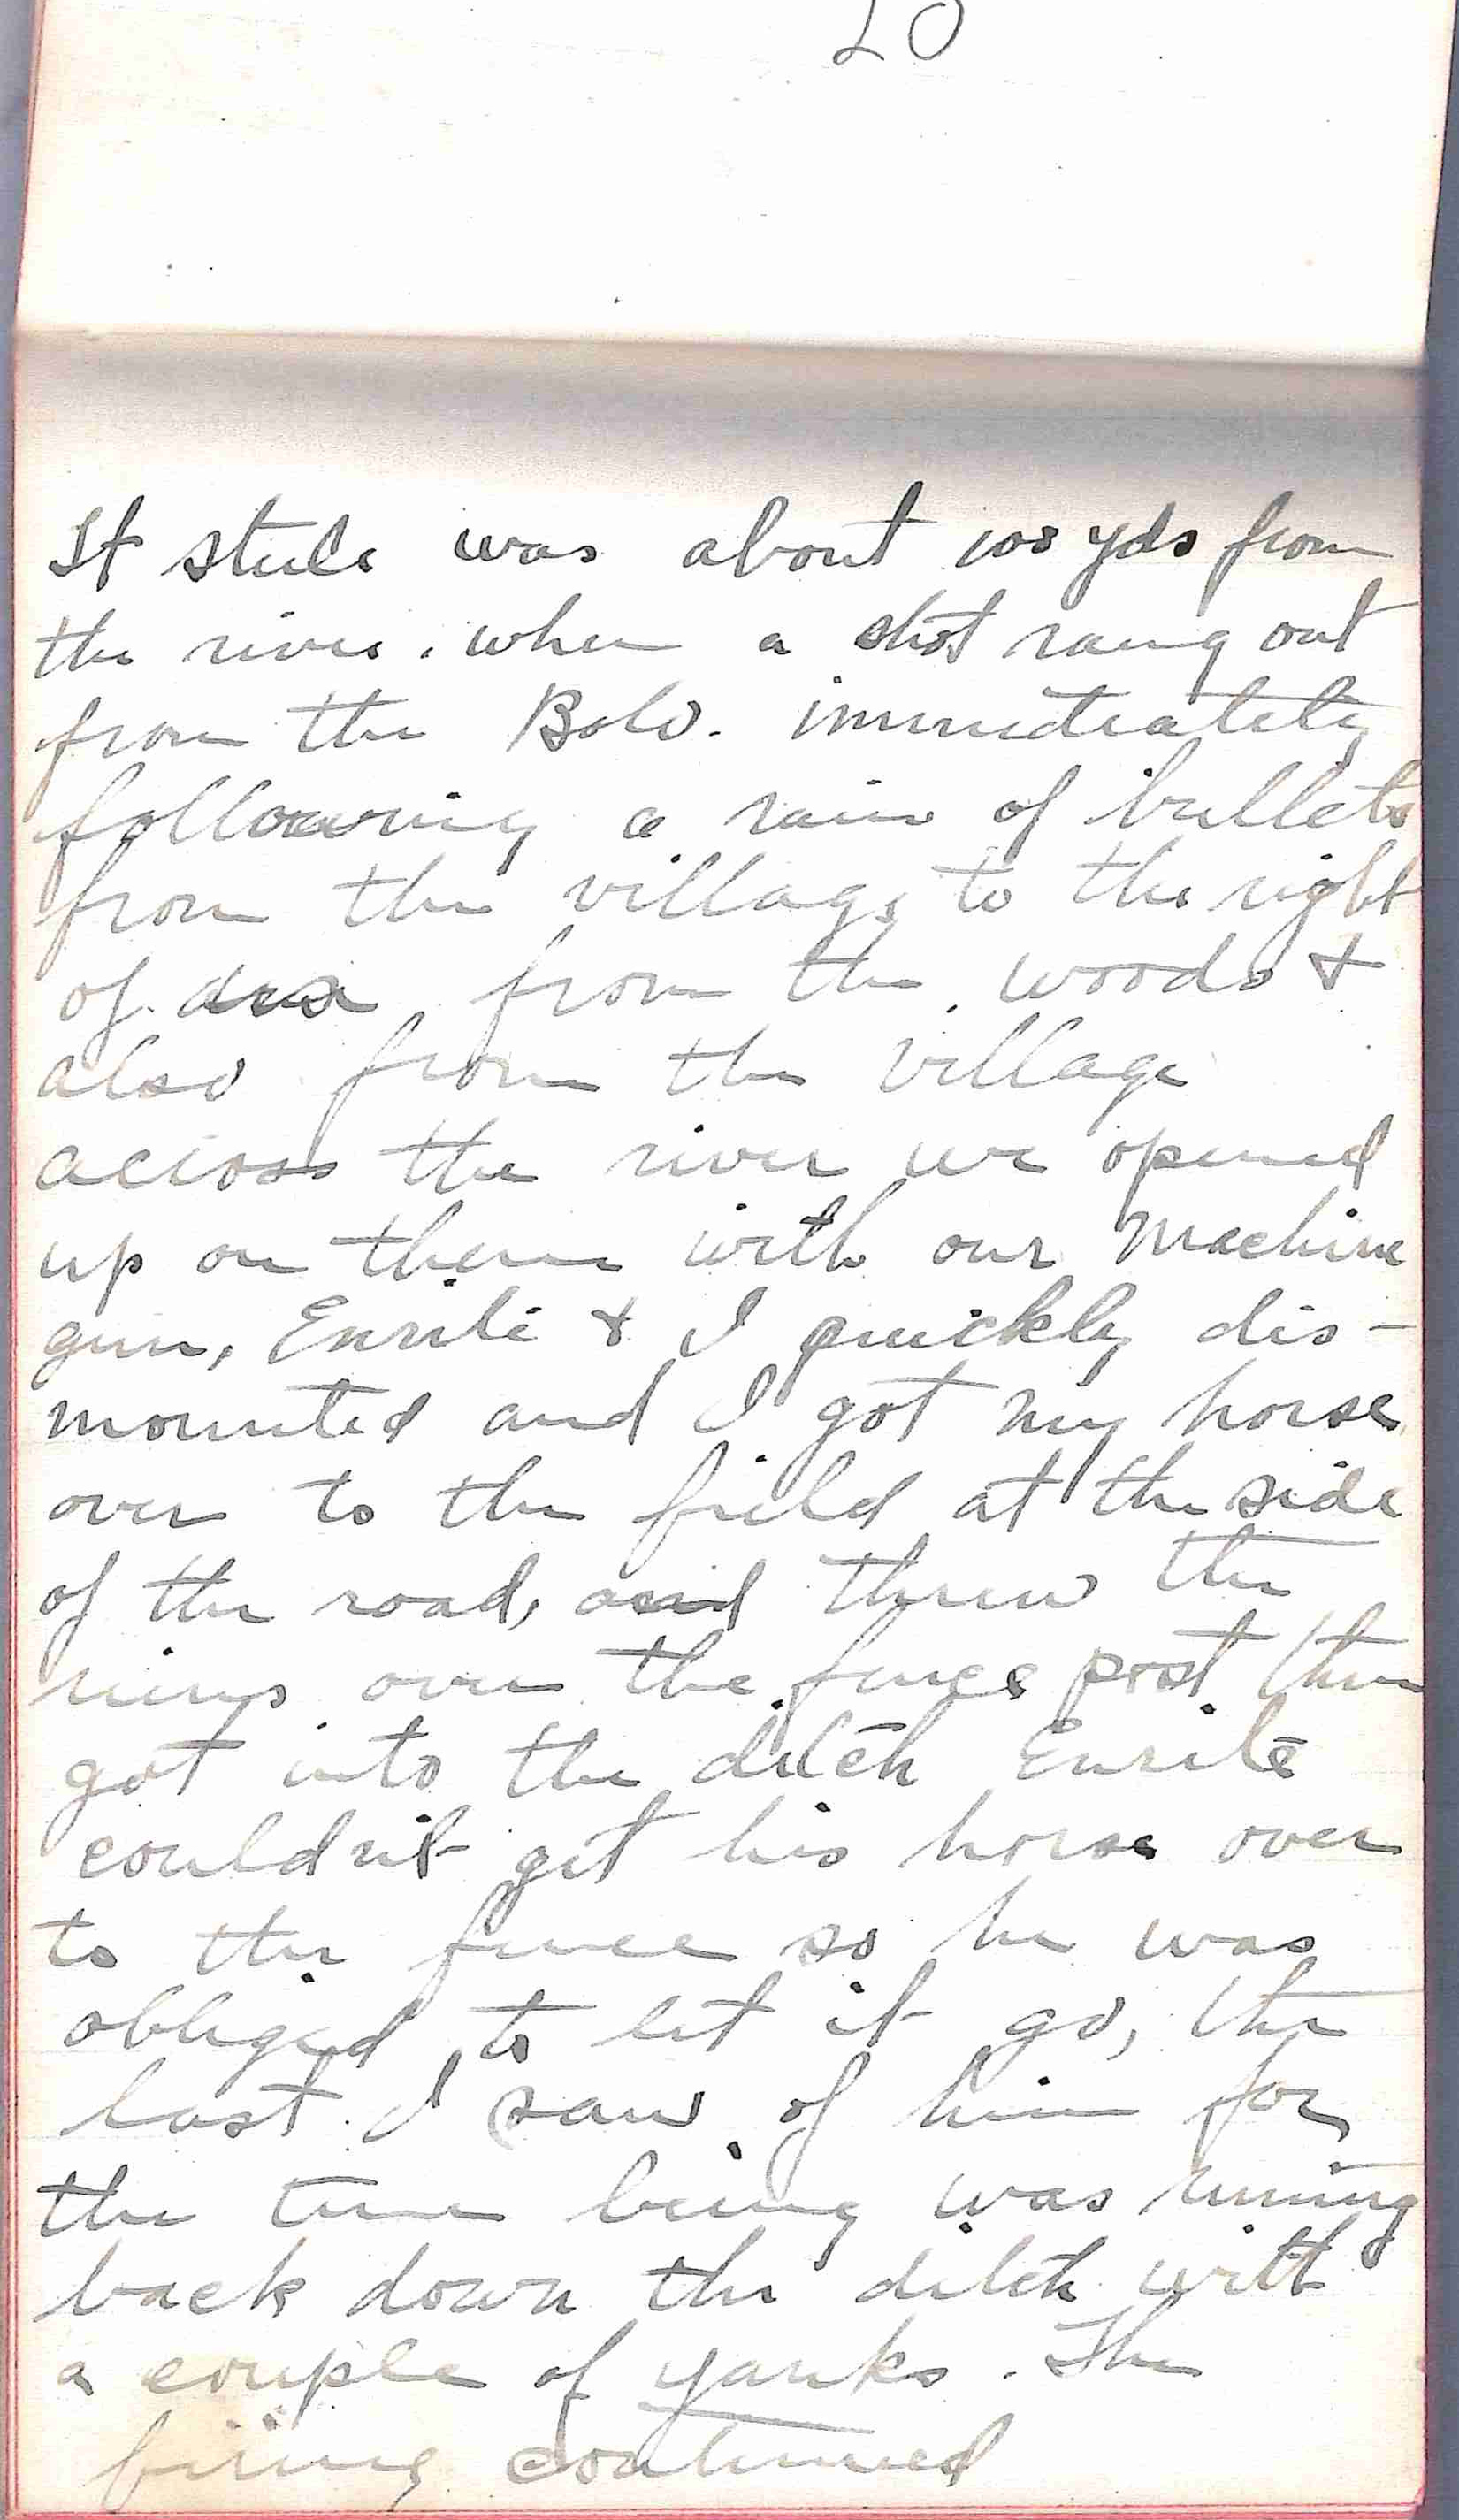 20
St Steele was about 100 yds from
the river. when a shot rang out
from the Bolo. immediately
following a rain of bullets
from the village to the right
of from the woods &
also from the village
across the river we opened
up on them with our Machine
gun, Enrile & I quickly dis-
mounted and I got my horse
over to the field at the side
of the road, and threw the
reins over the fence post then
got into the ditch Enrile
couldn't get his horse over
to the fence so he was
obliged to let it go, the
last I saw of him for
the time being was runing
back down the ditch with
a couple of yanks. The
firing continued